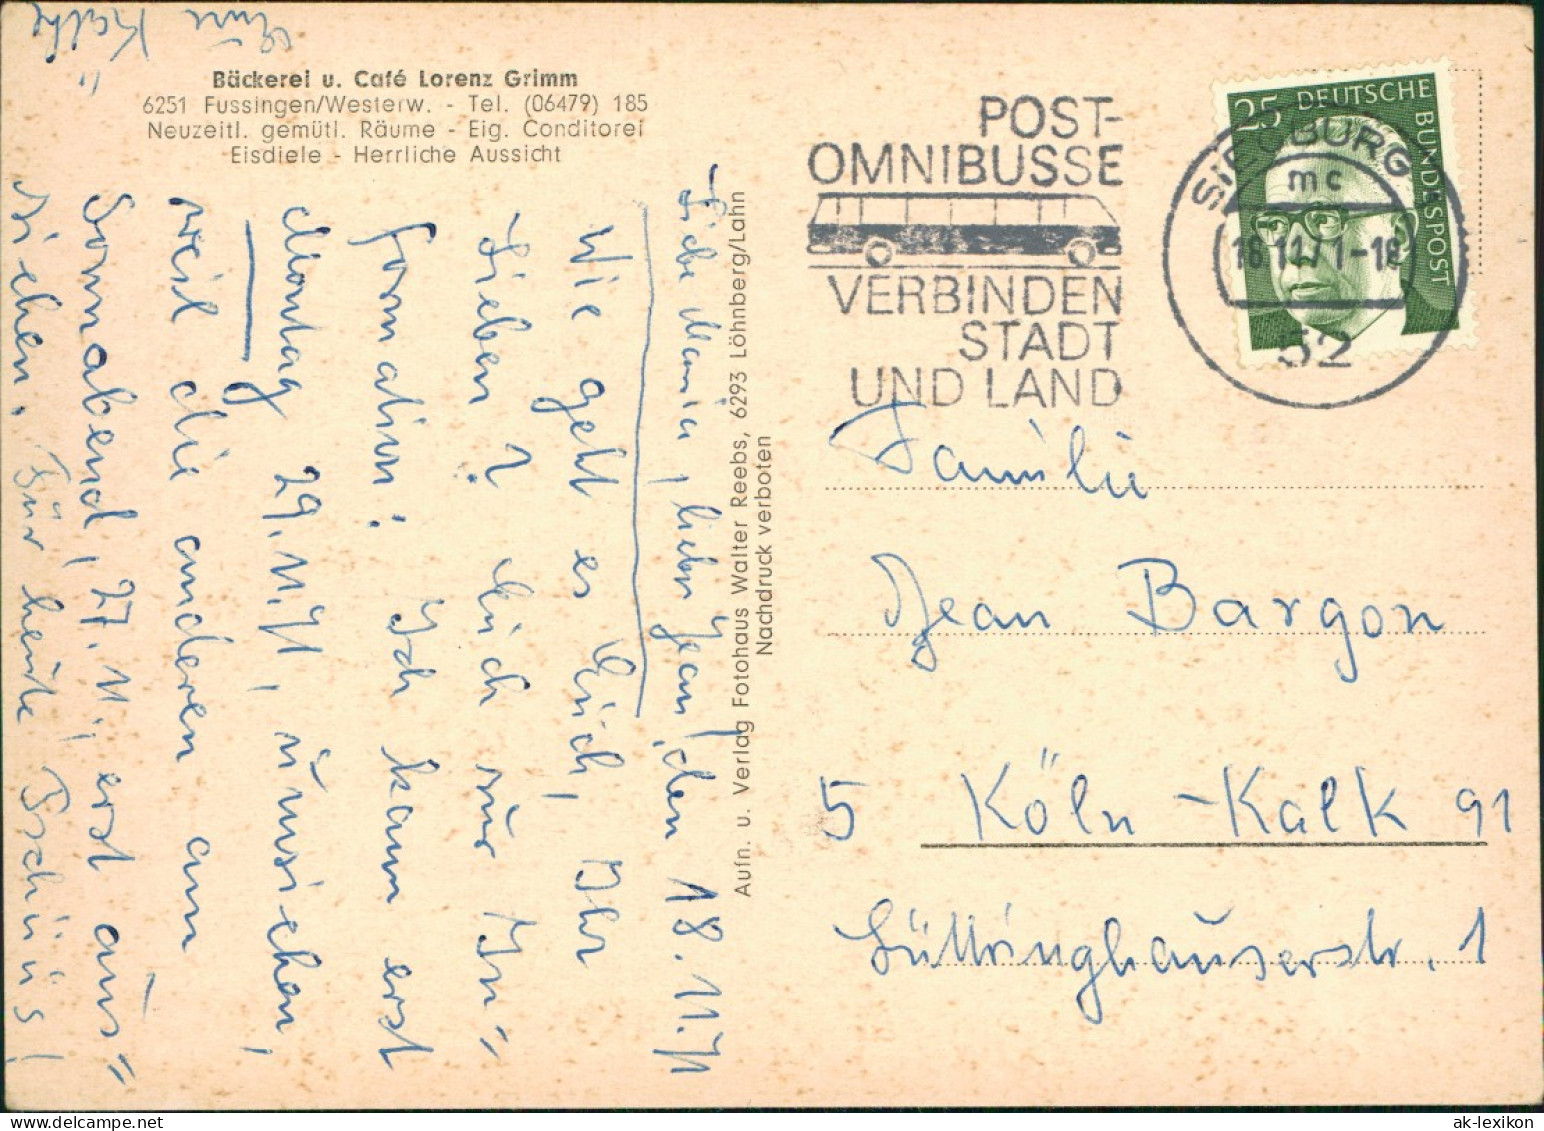 Bäckerei u. Café Lorenz Grimm
6251 Fussingen/Westerw. - Tel. (06479) 185
Neuzeitl. gemütl. Räume - Eig. Conditorei
Eisdiele - Herrliche Aussicht
Liebe Maria, lieber Jean, den 18.11.71
Wie geht es Euch, Ihr
Lieben? Euch nur In=
formation: Ich kann erst
Montag 29.11.71, einziehen,
weil die anderen am
Sonnabend, 27.11., erst aus=
ziehen. Für heute Tschüüs!
Eure
Käthe
Aufn. u. Verlag Fotohaus Walter Reebs, 6293 Löhnberg/Lahn
Nachdruck verboten
POST-
OMNIBUSSE
VERBINDEN
STADT
UND LAND
25 DEUTSCHE BUNDESPOST
SIEGBURG
mc
18.11.71-18
52
Familie
Jean Bargon
5 Köln-Kalk 91
Lüttringhauserstr. 1
ak-lexikon